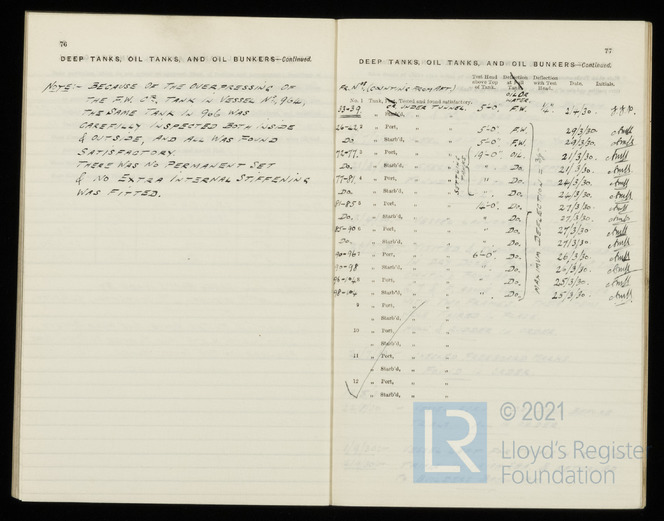 76
DEEP TANKS, OIL TANKS, AND OIL BUNKERS—Continued.
NOTE:- BECAUSE OF THE OVERPRESSING OF
THE F.W. TANK IN VESSEL No. 904,
THE SAME TANK IN 906 WAS
CAREFULLY INSPECTED BOTH INSIDE
& OUTSIDE, AND ALL WAS FOUND
SATISFACTORY.
THERE WAS NO PERMANENT SET
& NO EXTRA INTERNAL STIFFENING
WAS FITTED.
77
DEEP TANKS, OIL TANKS, AND OIL BUNKERS—Continued.
FR. Nos (COUNTING FROM AFT)
Test Head above Top of Tank. Deflection at Full OIL OR WATER. Deflection with Test Head. Date. Initials.
No. 1 Tank, Port, Tested and found satisfactory.
33-39 " Starb'd, C.R. UNDER TUNNEL. 5'-0" F.W. 1/4" 24/30.
" Port, " " 5'-0" F.W. 29/3/30.
Do. " Starb'd, " " 5'-0" F.W. 29/3/30.
72-77 " Port, " " 19'-0" OIL. 21/3/30.
Do. " Starb'd, " " " Do. 21/3/30.
77-81 " Port, " " " Do. 24/3/30
Do. " Starb'd, " " " Do. 24/3/30.
81-85 " Port, " " Do. 27/3/30
Do. " Starb'd, " " " Do. 27/3/30.
85-90 " Port, " " " Do. 27/3/30
Do. " Starb'd, " " " Do. 27/3/30
90-96 " Port, " " 6'-0" Do. 26/3/30.
90-98 " Starb'd, " " " Do. 26/3/30.
" Port, " " " Do. 25/3/30.
98-104 " Starb'd, " " " Do. 25/3/30.
MAXIMUM DEFLECTION =
9 " Port, " "
" Starb'd, " "
10 " Port, " "
" Starb'd, " "
11 " Port, " "
" Starb'd, " "
12 " Port, " "
" Starb'd, " "
LR
© 2021
Lloyd's Register
Foundation